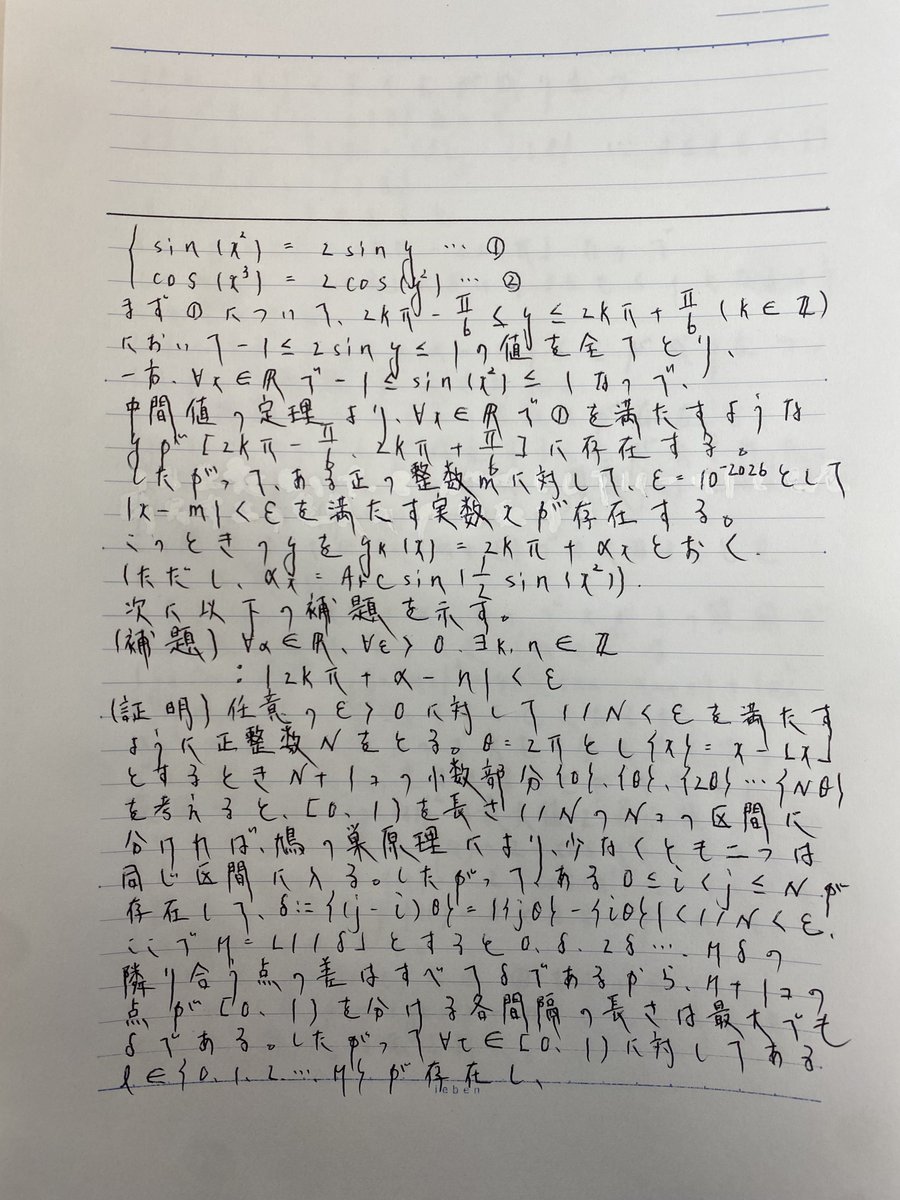 sin(x²) = 2 sin y … ①
cos(x³) = 2 cos(y²) … ②
まず①について、2kπ - π/6 ≤ y ≤ 2kπ + π/6 (k ∈ ℤ)
において -1 ≤ 2 sin y ≤ 1 の値を全てとり、
一方、∀x ∈ ℝ で -1 ≤ sin(x²) ≤ 1 なので、
中間値の定理より、∀x ∈ ℝ で①を満たすような
y が [2kπ - π/6, 2kπ + π/6] に存在する。
したがって、ある正の整数 m に対して、ε = 10⁻²⁰²⁶ として
|x - m| < ε を満たす実数 x が存在する。
このときの y を yk(x) = 2kπ + αx とおく.
(ただし、αx = Arcsin(1/2 sin(x²)).
次に以下の補題を示す。
(補題) ∀α ∈ ℝ、∀ε > 0. ∃k, n ∈ ℤ
: |2kπ + α - n| < ε
(証明) 任意の ε > 0 に対して 1/N < ε を満たす
ように正整数 N をとる。θ = 2π とし {x} = x - ⌊x⌋
とするとき N + 1 コの小数部分 {0}, {θ}, {2θ} … {Nθ}
を考えると、[0, 1) を長さ 1/N の N コの区間に
分ければ、鳩の巣原理により、少なくとも二つは
同じ区間に入る。したがって、ある 0 ≤ i < j ≤ N が
存在して、δ := {(j - i)θ} = |{jθ} - {iθ}| < 1/N < ε.
ここで M = ⌊1/δ⌋ とすると 0, δ, 2δ … Mδ の
隣り合う点の差はすべて δ であるから、M + 1 コの
点が [0, 1) を分ける各間隔の長さは最大でも
δ である。したがって ∀t ∈ [0, 1) に対してある
l ∈ {0, 1, 2 … M} が存在し、
ieben